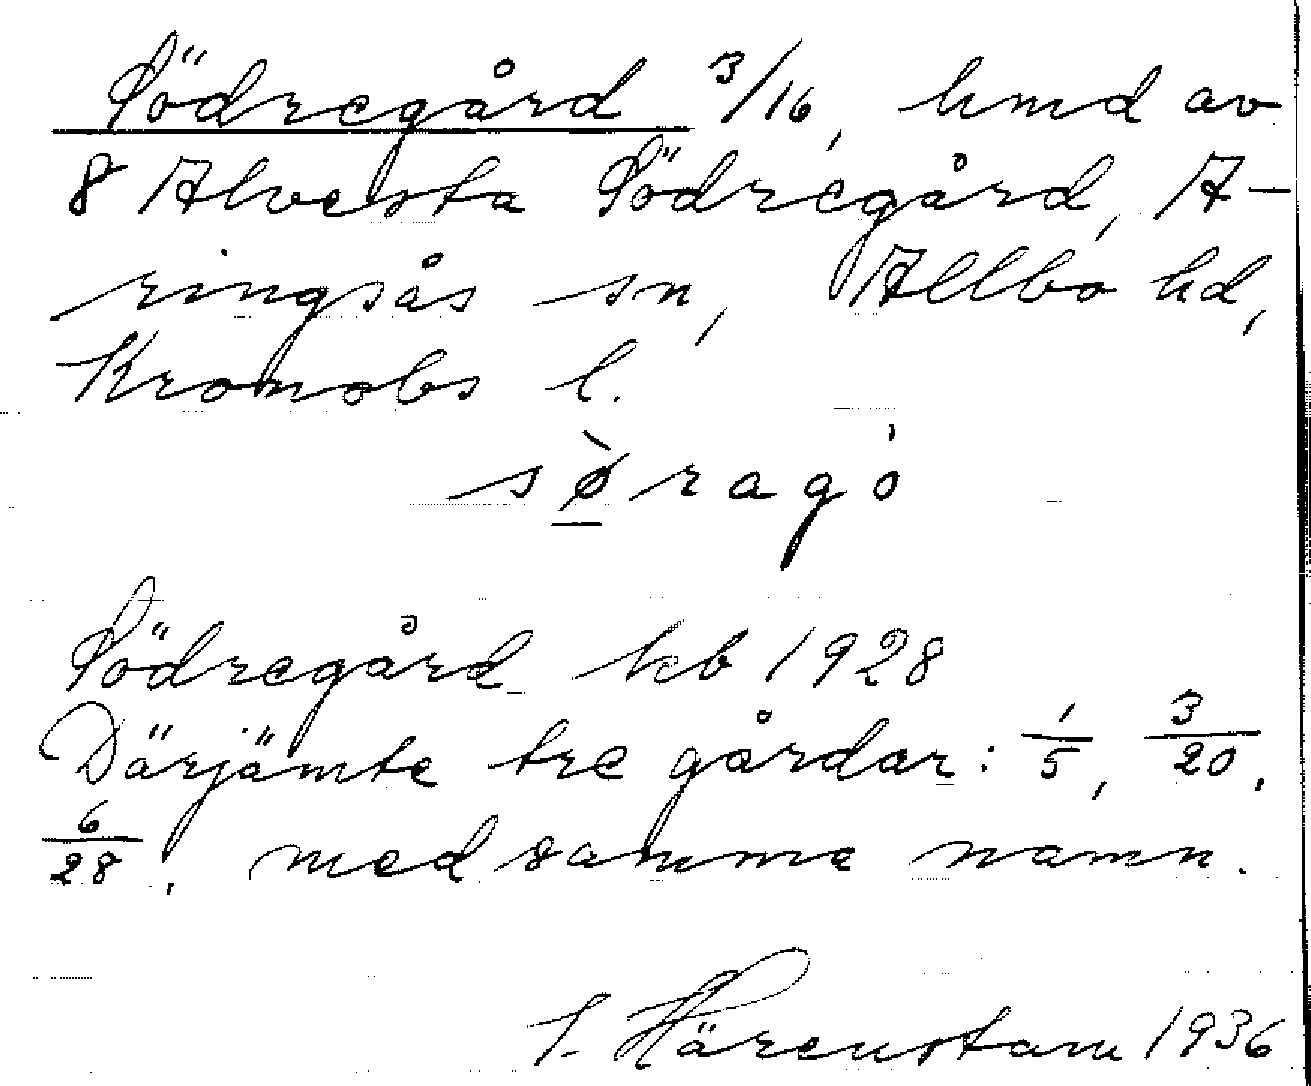 Södregård 3/16, hmd av
8 Alvesta Södregård, A-
ringsås sn, Allbo hd,
Kronobs l.
sø̀ragó
Södregård kb 1928
Därjämte tre gårdar: 1/5, 3/20,
6/28, med samma namn.
S. Härenstam 1936